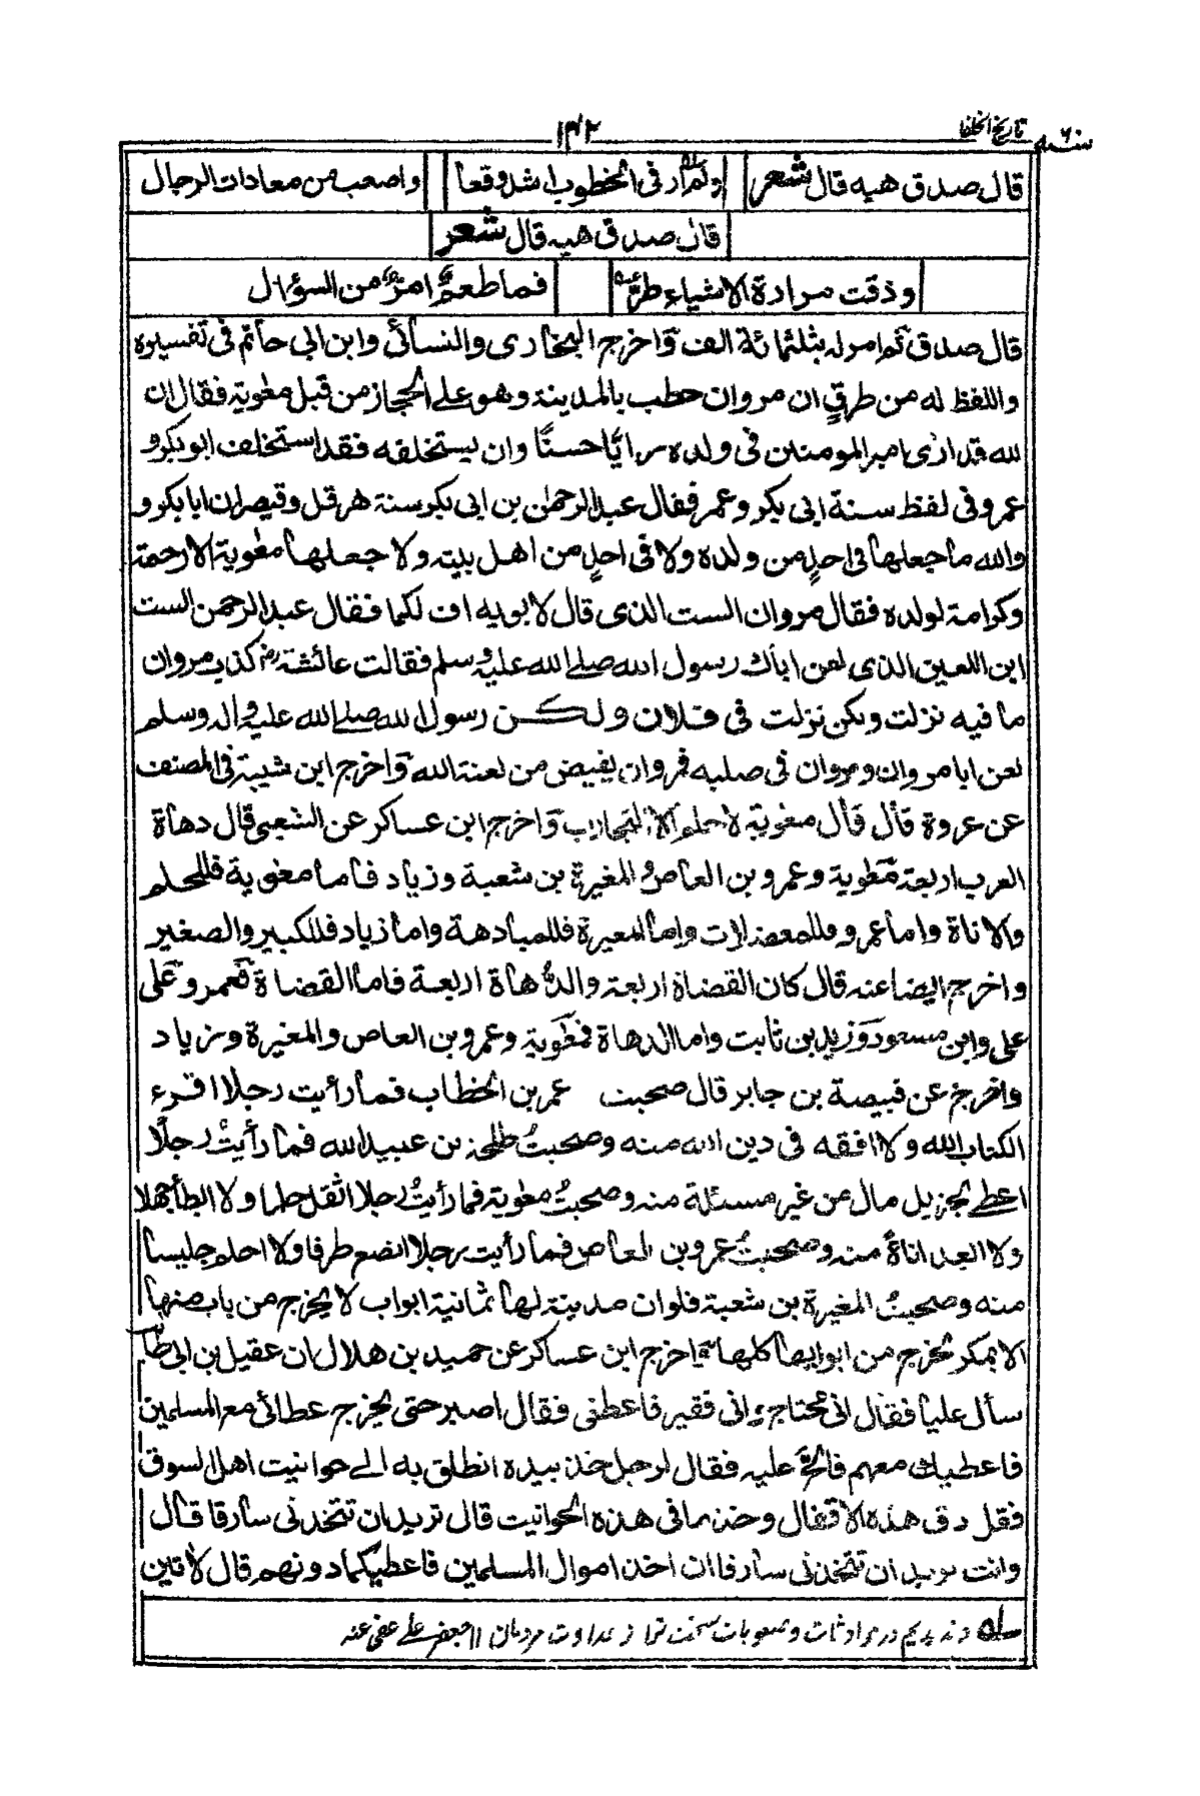 ١٤٢
تاريخ الخلفا
قال صدق هيه قال شعر ولم ار فى الخطوب اشد وقعا واصعب من معادات الرجال
قال صدق هيه قال شعر
وذقت مرارة الاشياء طرّا فما طعمٌ امرّ من السؤال
قال صدق ثم امر له بثلثمائة الف واخرج البخارى والنسائى وابن ابى حاتم فى تفسيره
واللفظ له من طرقٍ ان مروان خطب بالمدينة وهو على الحجاز من قبل معٰوية فقال ان
لله قد ارى امير المومنين فى ولده يزيد رايًا حسنًا وان يستخلفه فقد استخلف ابو بكر و
عمر وفى لفظ سنة ابى بكر وعمر فقال عبد الرحمٰن بن ابى بكر سنة هرقل وقيصر ان ابا بكر و
والله ما جعلها فى احدٍ من ولده ولا فى احدٍ من اهل بيته ولا جعلها معٰوية الا رحمة
وكرامة لولده فقال مروان الست الذى قال لابويه اف لكما فقال عبد الرحمن الست
ابن اللعين الذى لعن اباك رسول الله صلے الله عليه وسلم فقالت عائشة رض كذب مروان
ما فيه نزلت ولكن نزلت فى فلان ولكن رسول الله صلے الله عليه واله وسلم
لعن ابا مروان ومروان فى صلبه فمروان يفيض من لعنة الله واخرج ابن شيبة فى المصنف
عن عروة قال قال معٰوية لا حلم الا التجارب واخرج ابن عساكر عن الشعبى قال دهاة
العرب اربعة معٰوية وعمرو بن العاص والمغيرة بن شعبة وزياد فاما معٰوية فللحلم
والاناة واما عمرو فللمعضلات واما المغيرة فللمبادهة واما زياد فللكبير والصغير
واخرج ايضا عنه قال كان القضاة اربعة والدُّهاة اربعة فاما القضاة فعمر وعلى
على وابن مسعود وزيد بن ثابت واما الدهاة فمعٰوية وعمرو بن العاص والمغيرة وزياد
واخرج عن قبيصة بن جابر قال صحبت عمر بن الخطاب فما رأيت رجلا اقرء
الكتاب الله ولا افقه فى دين الله منه وصحبتُ طلحة بن عبيد الله فما رأيتُ رجلًا
اعطے لجزيل مال من غير مسئلة منه وصحبتُ معٰوية فما رأيتُ رجلا اثقل حلما ولا ابطأ جهلا
ولا ابعد اناةً منه وصحبتُ عمرو بن العاص فما رأيت رجلا انصع طرفا ولا احلم جليسا
منه وصحبتُ المغيرة بن شعبة فلو ان مدينة لها ثمانية ابواب لا يخرج من باب منها
الا بمكر لخرج من ابوابها كلها واخرج ابن عساكر عن حميد بن هلال ان عقيل بن ابى طالب
سأل عليا فقال انى محتاج وانى فقير فاعطنى فقال اصبر حتى يخرج عطائى مع المسلمين
فاعطيك معهم فالحّ عليه فقال لرجل خذ بيده انطلق به الے حوانيت اهل السوق
فقل دق هذه الاقفال وخذ ما فى هذه الحوانيت قال تريد ان تتخذنى سارقا قال
وانت تريد ان تتخذنى سارقا ان اخذ اموال المسلمين فاعطيكها دونهم قال لاتين
ونديديم در حوادثات وصعوبات سخت تر از عداوت مردمان ١٢ جعفر على عفى عنه